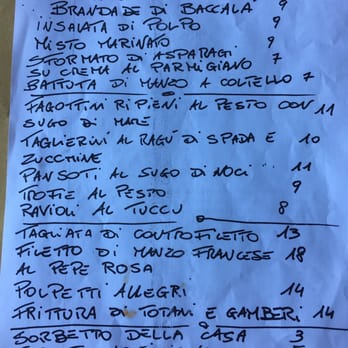 BRANDADE DI BACCALÀ 9
INSALATA DI POLPO 9
MISTO MARINATO 9
SFORMATO DI ASPARAGI 7
SU CREMA AL PARMIGIANO
BATTUTA DI MANZO A COLTELLO 7
FAGOTTINI RIPIENI AL PESTO CON 11
SUGO DI MARE
TAGLIERINI AL RAGÙ DI SPADA E 10
ZUCCHINE
PANSOTI AL SUGO DI NOCI 11
TROFIE AL PESTO 9
RAVIOLI AL TUCCU 8
TAGLIATA DI CONTROFILETTO 13
FILETTO DI MANZO FRANCESE 18
AL PEPE ROSA
POLPETTI ALLEGRI 14
FRITTURA DI TOTANI E GAMBERI 14
SORBETTO DELLA CASA 3